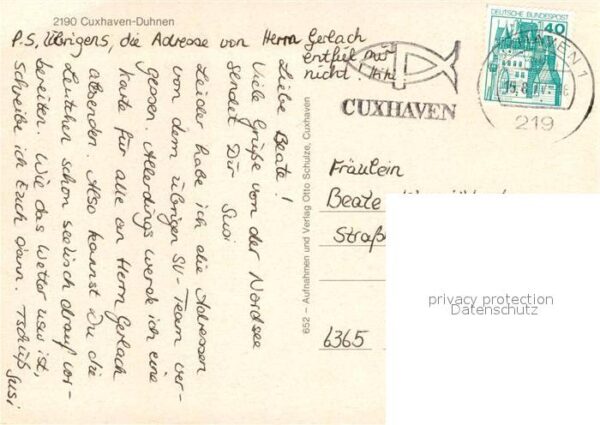 2190 Cuxhaven-Duhnen
P.S. Übrigens, die Adresse von Herrn Gerlach
entfiel mir
nicht
Liebe Beate!
Viele Grüße von der Nordsee
sendet Dir Susi
Leider habe ich die Adressen
von dem übrigen SV-Team ver-
gessen. Allerdings werde ich eine
Karte für alle an Herrn Gerlach
absenden. Also kannst Du die
Leutchen schon seelisch drauf vor-
bereiten. Wie das Wetter usw ist,
schreibe ich Euch dann. Tschüß
Susi
652 – Aufnahmen und Verlag Otto Schulze, Cuxhaven
DEUTSCHE BUNDESPOST
40
CUXHAVEN
HAVEN 1
219
Fräulein
Beate
Straße
6365
privacy protection
Datenschutz